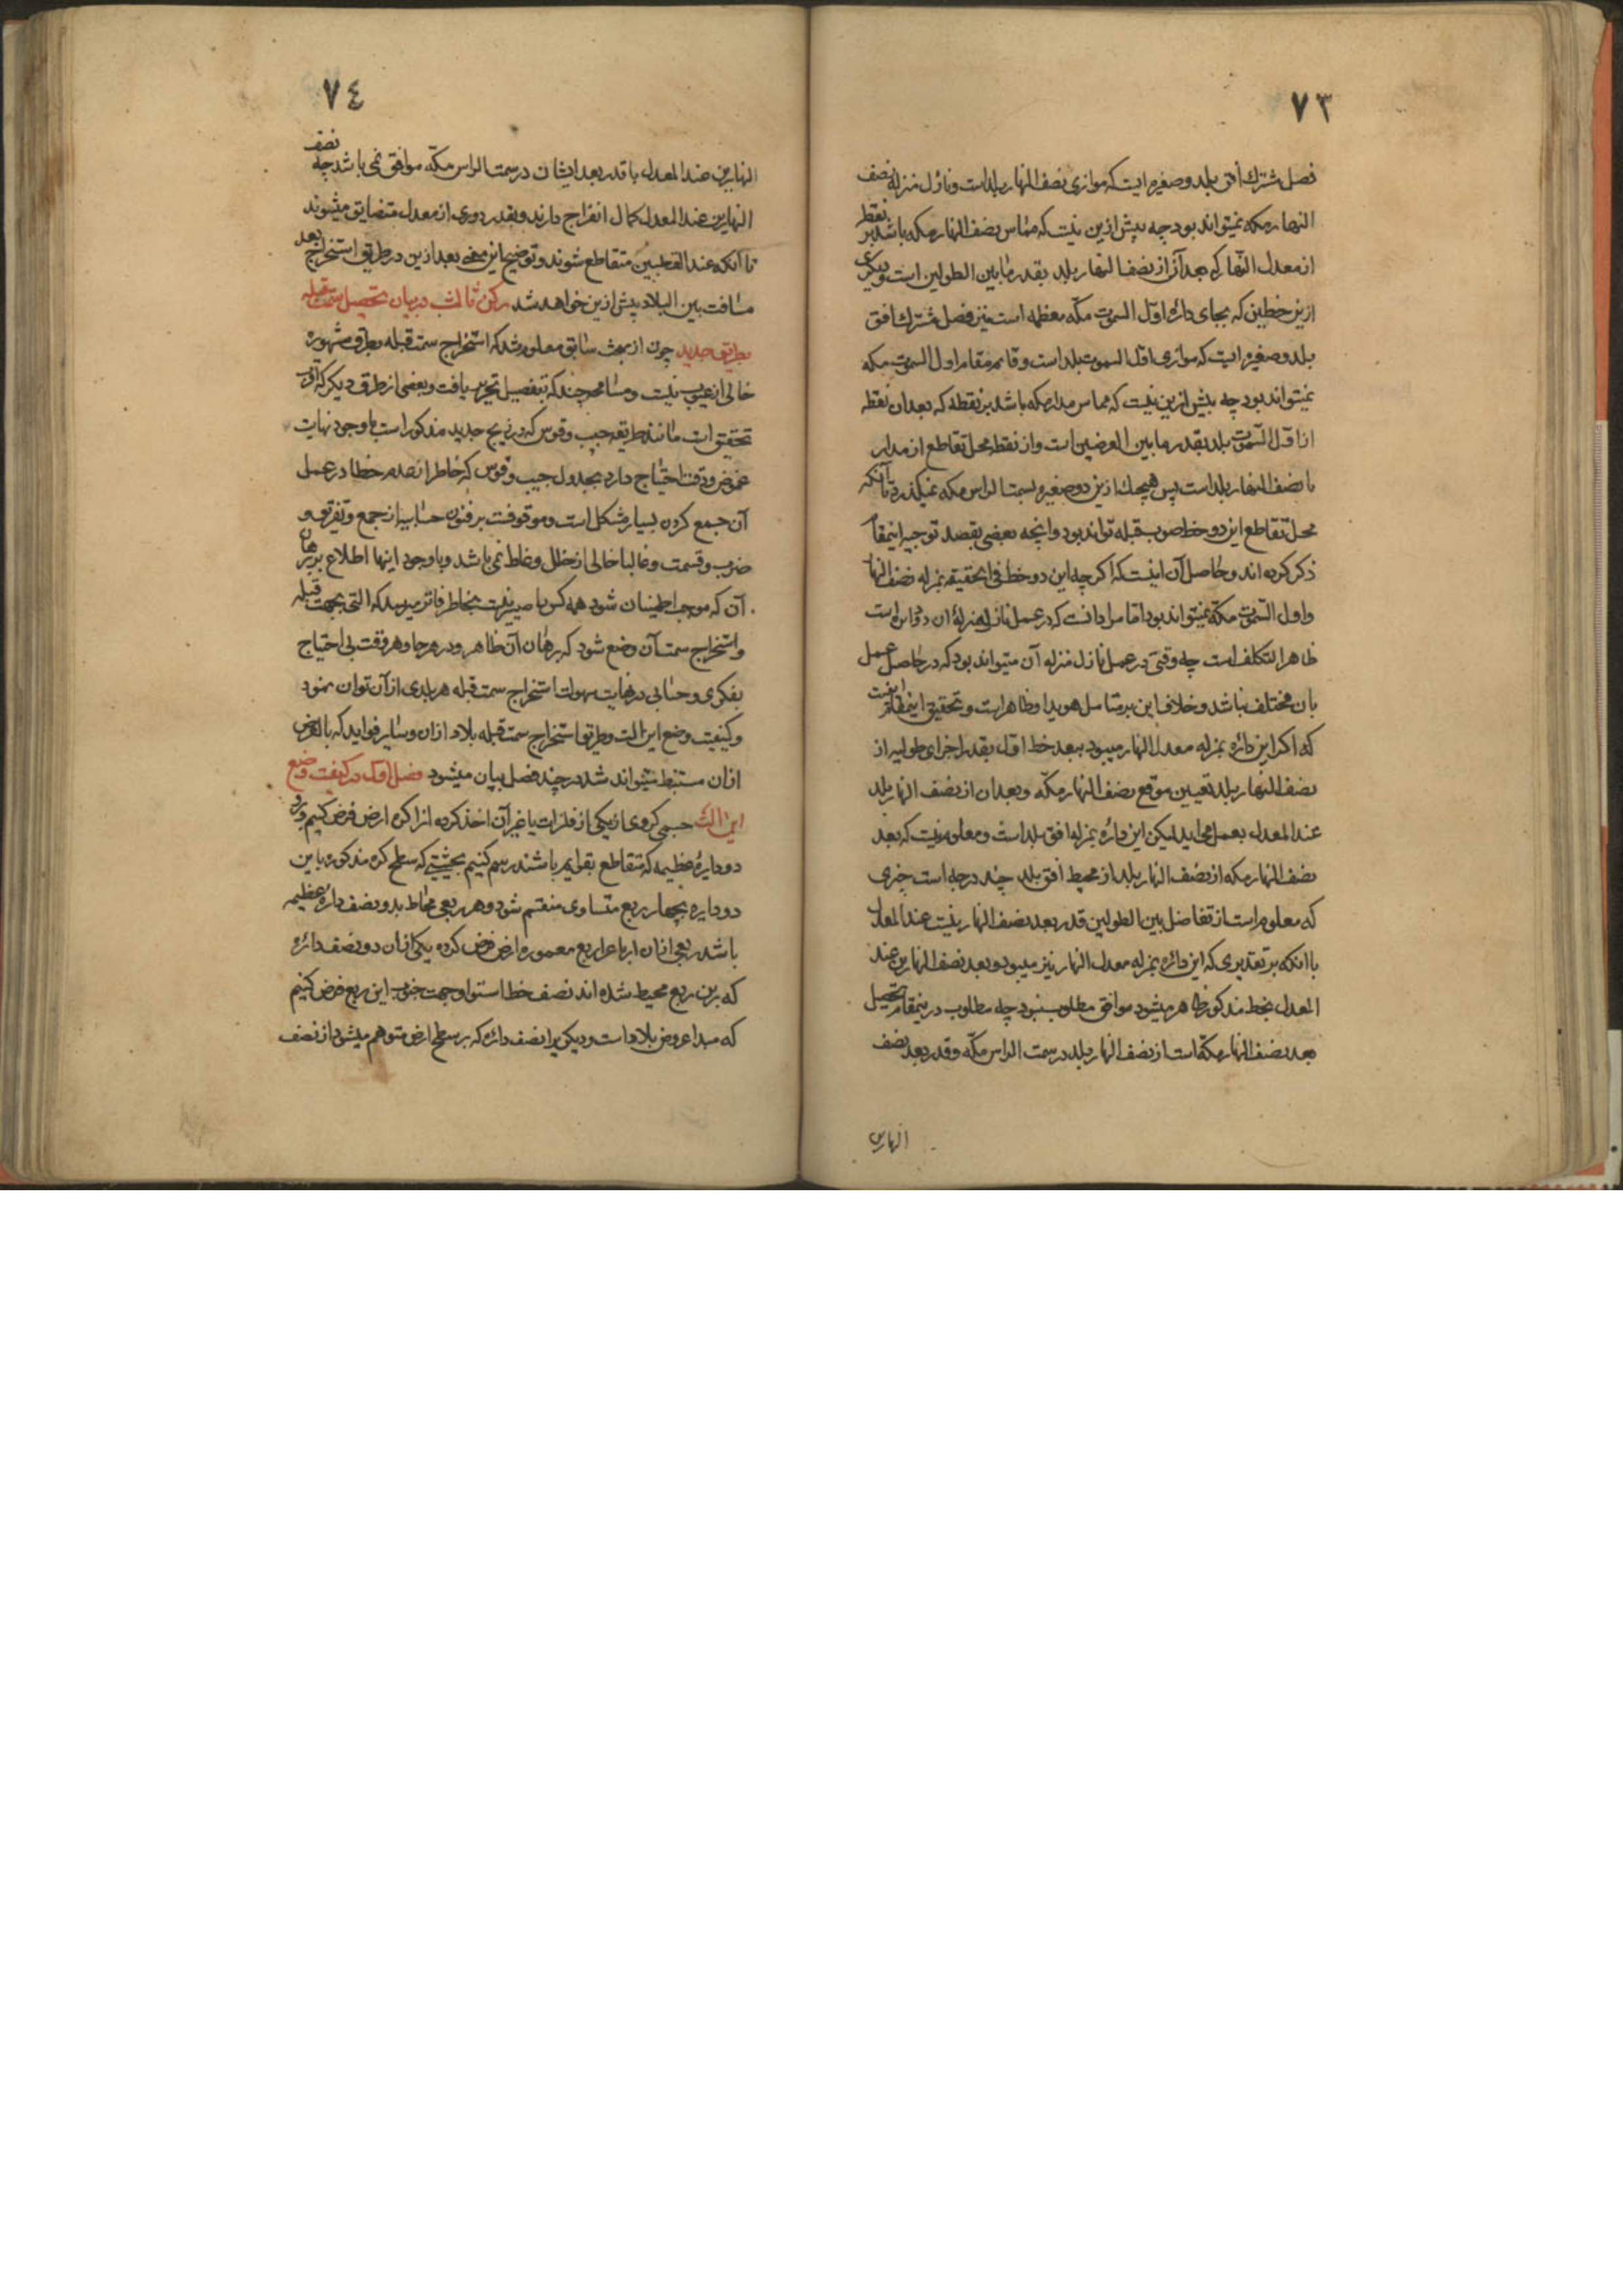 ٧٣
فصل مشترك افق بلد و صغیره ایست که موازی نصف النهار بلد است و نازل منزله نصف
النهار مکه نمیتواند بود چه بیش ازین نیست که مماس نصف النهار مکه باشد بر نقطه
از معدل النهار که بعد آن از نصف النهار بلد بقدر مابین الطولین است و دیکری
ازین خطین که بجای دائره اول السموت مکه معظمه است نیز فصل مشترك افق
بلد و صغیره ایست که موازی اول السموت بلد است و قایم مقام اول السموت مکه
نمیتواند بود چه بیش ازین نیست که مماس مدار مکه باشد بر نقطه که بعد ان نقطه
از اول السموت بلد بقدر مابین العرضین است وان نقطه محل تقاطع ان مدار
با نصف النهار بلد است پس هیچیك ازین دو صغیره بسمت الراس مکه نمیکذرد تا آنکه
محل تقاطع این دو خط صوب قبله تواند بود و اینچه بعضی بقصد توجیه اینمقام
ذکر کرده اند و حاصل آن اینست که اکرچه این دو خط فی الحقیقه بمنزله نصف النهار
و اول السموت مکه نمیتواند بود اما مراد انست که در عمل نازل منزلهٔ ان دو دایره است
ظاهرا لتکلف است چه وقتی در عمل نازل منزله آن میتواند بود که در حاصل عمل
بان مختلف نباشد و خلاف این بر متامل هویدا و ظاهر است و تحقیق اینمقام اینست
که اکر این دائره بمنزله معدل النهار میبود ببعد خط اول بقدر اجزای طولیه از
نصف النهار بلد تعیین موقع نصف النهار مکه و بعد ان از نصف النهار بلد
عند المعدل بعمل می اید لیکن این دائره بمنزله افق بلد است و معلوم نیست که بعد
نصف النهار مکه از نصف النهار بلد از محیط افق بلد چند درجه است چیزی
که معلوم است از تفاضل بین الطولین قدر بعد نصف النهارینست عند المعدل
با انکه بر تقدیری که این دائره بمنزله معدل النهار نیز میبود و بعد نصف النهارین عند
المعدل بخط مذکور ظاهر میشود موافق مطلوب نبود چه مطلوب درینمقام تحصیل
بعد نصف النهار مکه است از نصف النهار بلد در سمت الراس مکه و قدر بعد نصف
النهارین
٧٤
النهارین عند المعدل با قدر بعد ایشان در سمت الراس مکه موافق نمی باشد چه نصف
النهارین عند المعدل کمال انفراج دارند و بقدر دوری از معدل متضایق میشوند
تا آنکه عند القطبین متقاطع شوند و توضیح این معنی بعد ازین در طریق استخراج بعد
مسافت بین البلاد پیش ازین خواهد شد رکن ثالث در بیان تحصیل سمت قبله
بطریق جدید چون از مبحث سابق معلوم شد که استخراج سمت قبله بطرق مشهوره
خالی از عیوب نیست و مسامحه چند که بتفصیل تحریر یافت و بعضی از طرق دیکر که اقرب
تحقیق است مانند طریقه جیب و قوس که در زیج جدید مذکور است با وجود نهایت
غموض و دقت احتیاج دارد بجدول جیب و قوس که خاطر از عدم خطا در عمل
آن جمع کردن بسیار مشکل است و موقوفست بر فنون حسابیه از جمع و تفریق و
ضرب و قسمت و غالبا خالی از خلل و غلط نمی باشد و باوجود اینها اطلاع بر برهان
آن که موجب اطمینان شود همه کس را میسر نیست بخاطر فاتر رسید که التی بجهت قبله
و استخراج سمت آن وضع شود که برهان آن ظاهر و در هر جا و هر وقت بی احتیاج
بفکری و حسابی در نهایت سهولت استخراج سمت قبله هر بلدی از آن توان نمود
و کیفیت وضع این الت و طریق استخراج سمت قبله بلاد ازان و سایر فواید که بالعرض
ازان مستنبط میتواند شد در چند فصل بیان میشود فصل اول در کیفیت وضع
این الت جسمی کروی از یکی از فلزات یا غیر آن اخذ کرده انرا کره ارض فرض کنیم و برو
دو دایرهٔ عظیمه که متقاطع بقوایم باشند رسم کنیم بحیثیتی که سطح کره مذکوره باین
دو دایره بچهار ربع متساوی منقسم شود و هر ربعی محاط بدو نصف دائره عظیمه
باشد ربعی ازان ارباع را ربع معمورهٔ ارض فرض کرده یکی ازان دو نصف دائره
که برین ربع محیط شده اند نصف خط استوا و جهت جنوب این ربع فرض کنیم
که مبدا عروض بلاد است و دیکری را نصف دائره که بر سطح ارض متوهم میشود از نصف